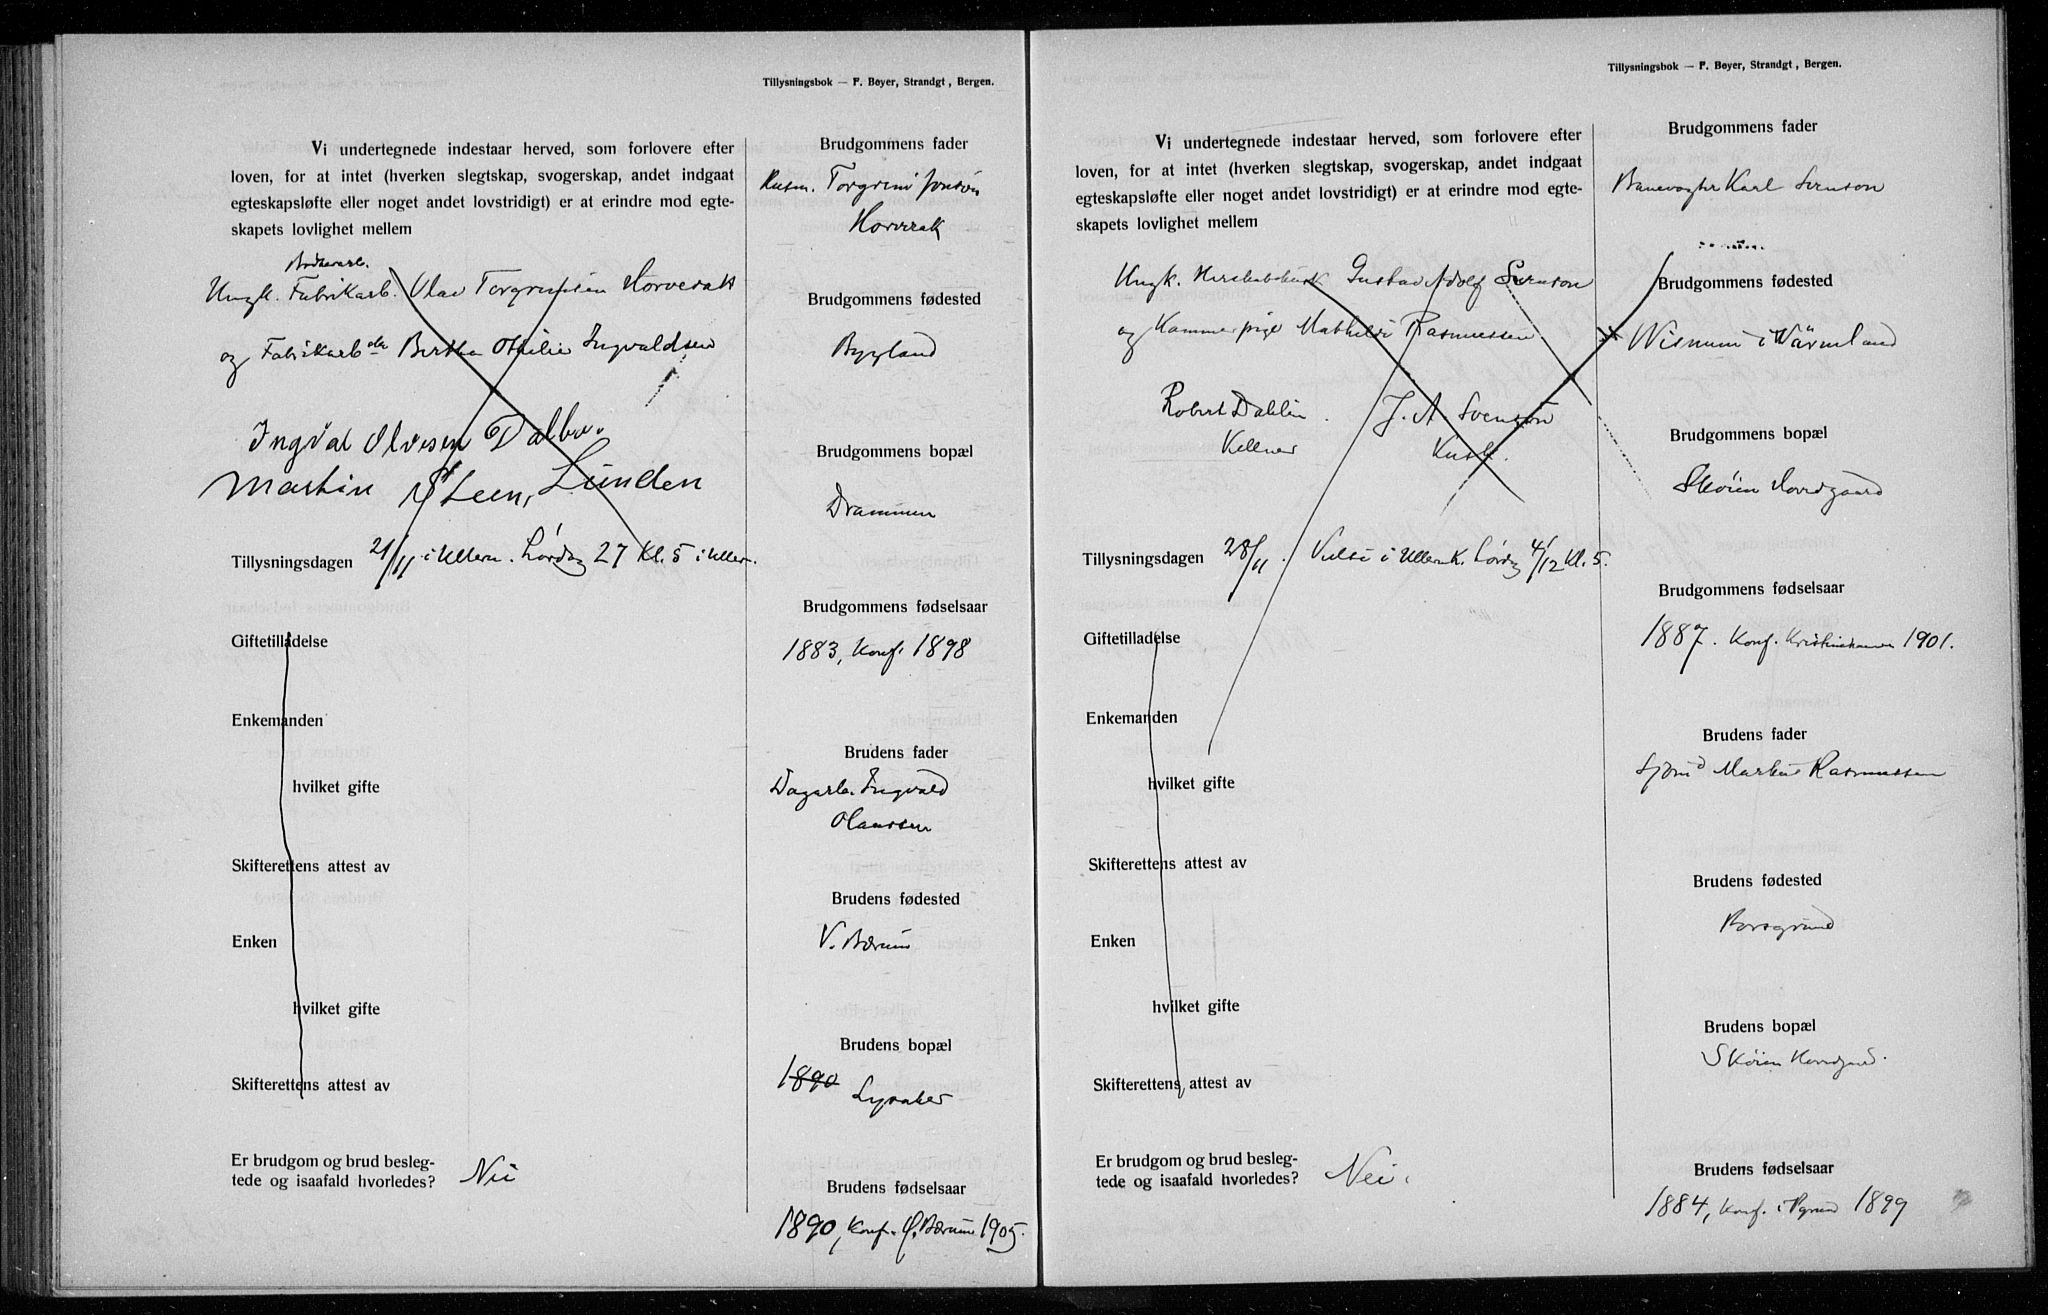 Tillysningsbok — F. Bøyer, Strandgt, Bergen.
Vi undertegnede indestaar herved, som forlovere efter
loven, for at intet (hverken slegtskap, svogerskap, andet indgaat
egteskapsløfte eller noget andet lovstridigt) er at erindre mod egte-
skapets lovlighet mellem
Ungk. Fabrikarb. Olav Torgrimsen Horverak
og Fabrikarb Berthe Othilie Ingvaldsen
Ingval Olvesen Dalbo.
Martin Steen, Lunden
Tillysningsdagen 21/11 i Ullern. Lørdag 27 Kl. 5 i Ullern.
Giftetilladelse
Enkemanden
hvilket gifte
Skifterettens attest av
Enken
hvilket gifte
Skifterettens attest av
Er brudgom og brud besleg-
tede og isaafald hvorledes? Nei
Brudgommens fader
Husm. Torgrim Jonson
Horverak
Brudgommens fødested
Bygland
Brudgommens bopæl
Drammen
Brudgommens fødselsaar
1883, Konf. 1898
Brudens fader
Dagarb. Ingvald
Olaussen
Brudens fødested
V. Bærum
Brudens bopæl
1890
Lysaker
Brudens fødselsaar
1890, Konf. Ø. Bærum 1905.
Tillysningsbok — F. Bøyer, Strandgt, Bergen.
Vi undertegnede indestaar herved, som forlovere efter
loven, for at intet (hverken slegtskap, svogerskap, andet indgaat
egteskapsløfte eller noget andet lovstridigt) er at erindre mod egte-
skapets lovlighet mellem
Ungk. Herskabskusk Gustav Adolf Svenson
og Kammerpige Mathilde Rasmussen
Robert Dahlin. J. A Svenson
Kellner Kusk.
Tillysningsdagen 28/11. Vielse i Ullern K. Lørdag 4/12 Kl. 5.
Giftetilladelse
Enkemanden
hvilket gifte
Skifterettens attest av
Enken
hvilket gifte
Skifterettens attest av
Er brudgom og brud besleg-
tede og isaafald hvorledes? Nei.
Brudgommens fader
Banevogter Karl Svenson
Brudgommens fødested
Wisnum i Wärmland
Brudgommens bopæl
Skøien Hovedgaard
Brudgommens fødselsaar
1887. Konf. Kristinehamn 1901.
Brudens fader
Sjømd Markus Rasmussen
Brudens fødested
Porsgrund
Brudens bopæl
Skøien Hovedgaard.
Brudens fødselsaar
1884, Konf. i Pgrund 1899